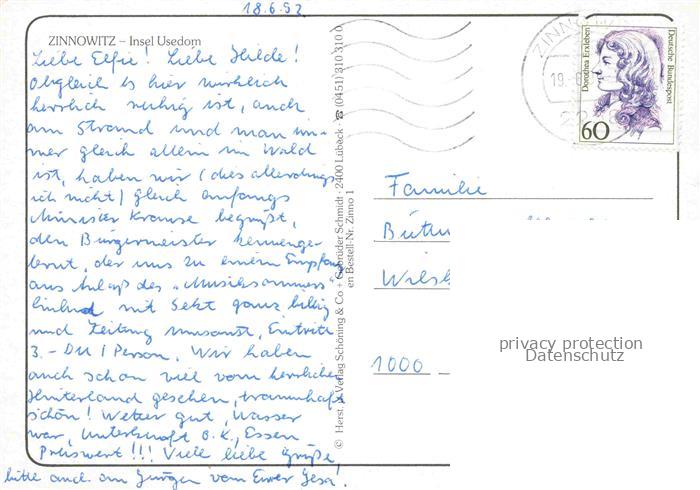 18.6.92
ZINNOWITZ – Insel Usedom
Liebe Elfie! Liebe Hilde!
Obgleich es hier wirklich
herrlich ruhig ist, auch
am Strand und man im-
mer gleich allein im Wald
ist, haben wir (dies allerdings
ich nicht) gleich anfangs
Minister Krause begrüßt,
den Bürgermeister kennenge-
lernt, der uns zu einem Empfang
aus Anlaß des „Musiksommers"
einlud mit Sekt ganz billig
und Zeitung umsonst, Eintritt
3.- DM 1 Person. Wir haben
auch schon viel vom herrlichen
Hinterland gesehen, traumhaft
schön! Wetter gut, Wasser
war, Unterkunft o.k., Essen
Preiswert!!! Viele liebe Grüße
bitte auch an Jürgen von Eurer
© Herst. u. Verlag Schöning & Co + Gebrüder Schmidt · 2400 Lübeck · ☎ (0451) 310 310 0
en Bestell-Nr. Zinno 1
ZINNO
19.
Dorothea Erxleben
Deutsche Bundespost
60
Familie
Wilsb
1000
privacy protection
Datenschutz